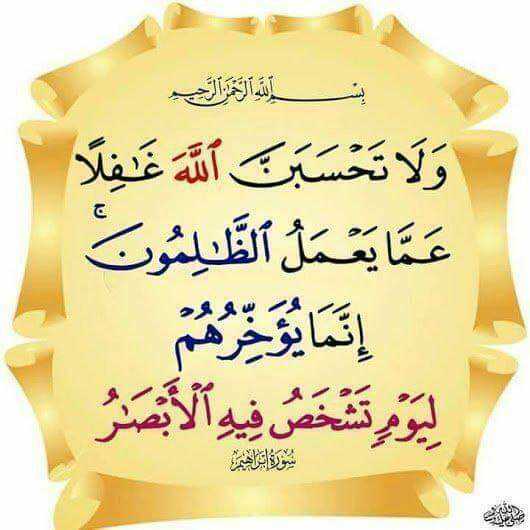 بِسْمِ ٱللَّهِ ٱلرَّحْمَٰنِ ٱلرَّحِيمِ
وَلَا تَحْسَبَنَّ ٱللَّهَ غَٰفِلًا
عَمَّا يَعْمَلُ ٱلظَّٰلِمُونَ ۚ
إِنَّمَا يُؤَخِّرُهُمْ
لِيَوْمٍ تَشْخَصُ فِيهِ ٱلْأَبْصَٰرُ
سُورَةُ إِبْرَاهِيمَ